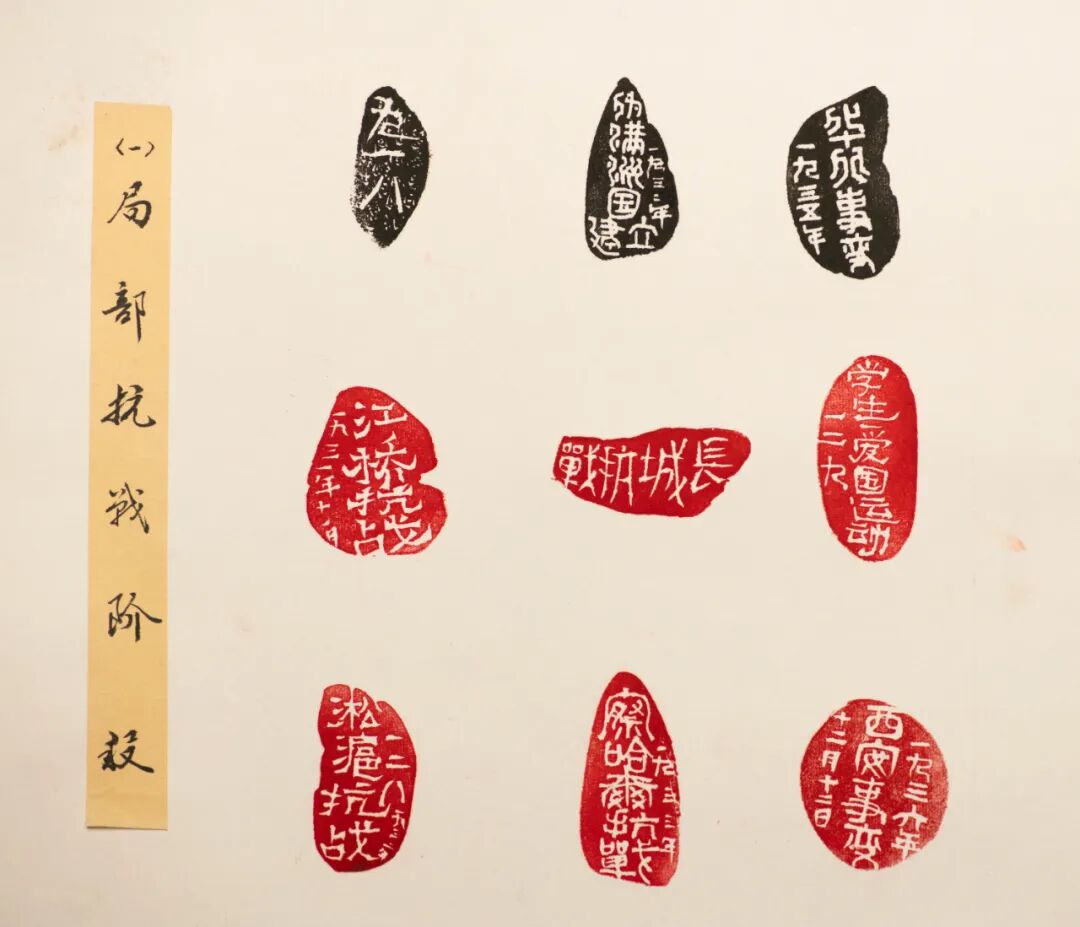 〈一〉局部抗战阶段
九一八
伪满洲国建立
一九三二年
华北事变
一九三五年
江桥抗战
一九三一年十一月
長城抗戰
学生爱国运动
一二九
一二八
淞滬抗战
察哈爾抗戰
一九三三年
一九三六年
西安事变
十二月十二日